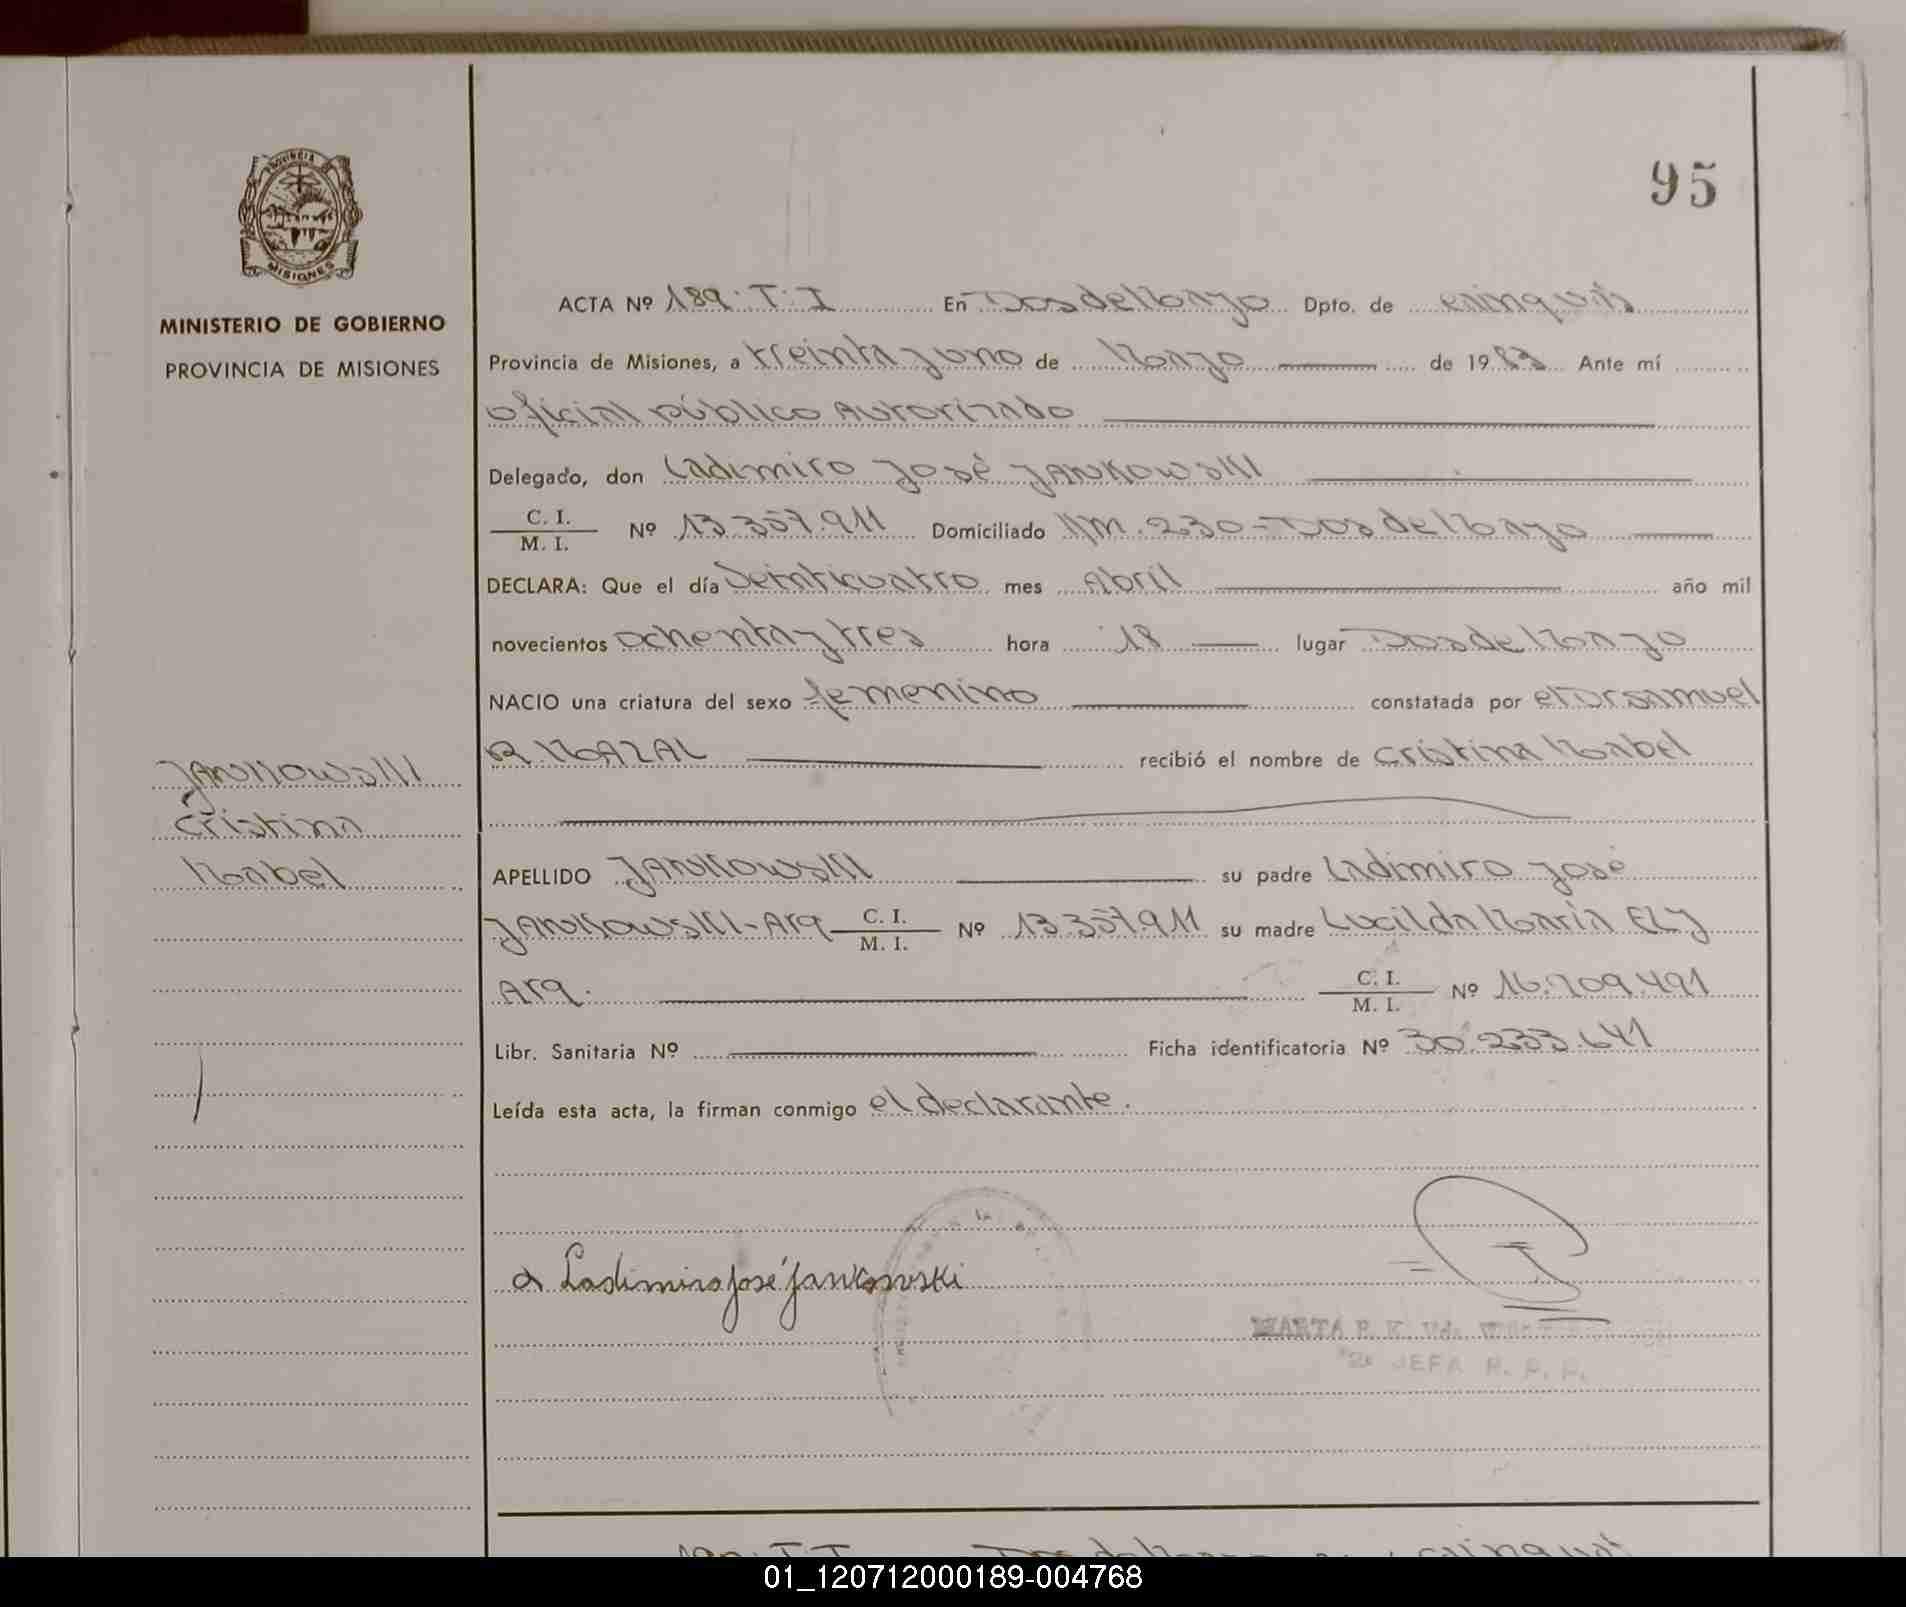 95
PROVINCIA
MISIONES
MINISTERIO DE GOBIERNO
PROVINCIA DE MISIONES
ACTA Nº 189. T. I En Dos de Mayo Dpto. de cainguás
Provincia de Misiones, a treinta y uno de Mayo de 1983 Ante mí
oficial público autorizado
Delegado, don Ladimiro José Jankowski
C. I.
M. I. Nº 13.357.911 Domiciliado Km. 230 - Dos de Mayo
DECLARA: Que el día Veinticuatro mes Abril año mil
novecientos ochenta y tres hora 18 lugar Dos de Mayo
NACIO una criatura del sexo femenino constatada por el Dr Samuel
R. MAZAL recibió el nombre de Cristina Mabel
Jankowski
Cristina
Mabel
APELLIDO Jankowski su padre Ladimiro José
Jankowski - Arq C. I.
M. I. Nº 13.357.911 su madre Lucilda Maria ELY
Arq. C. I.
M. I. Nº 16.709.491
Libr. Sanitaria Nº Ficha identificatoria Nº 30.233.641
Leída esta acta, la firman conmigo el declarante.
Ladimiro José Jankowski
MARTA
JEFA R. P. P.
01_120712000189-004768